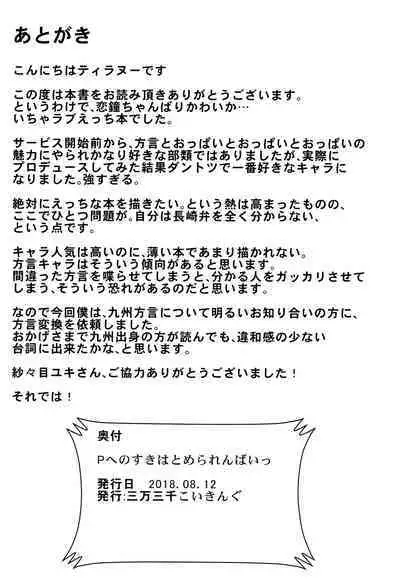 あとがき
こんにちはティラヌーです
この度は本書をお読み頂きありがとうございます。
というわけで、恋鐘ちゃんばりかわいか…
いちゃラブえっち本でした。
サービス開始前から、方言とおっぱいとおっぱいとおっぱいの
魅力にやられかなり好きな部類ではありましたが、実際に
プロデュースしてみた結果ダントツで一番好きなキャラに
なりました。強すぎる。
絶対にえっちな本を描きたい。という熱は高まったものの、
ここでひとつ問題が。自分は長崎弁を全く分からない、
という点です。
キャラ人気は高いのに、薄い本であまり描かれない。
方言キャラはそういう傾向があると思います。
間違った方言を喋らせてしまうと、分かる人をガッカリさせて
しまう、そういう恐れがあるのだと思います。
なので今回僕は、九州方言について明るいお知り合いの方に、
方言変換を依頼しました。
おかげさまで九州出身の方が読んでも、違和感の少ない
台詞に出来たかな、と思います。
紗々目ユキさん、ご協力ありがとうございました！
それでは！
奥付
Pへのすきはとめられんばいっ
発行日　2018.08.12
発行:三万三千こいきんぐ